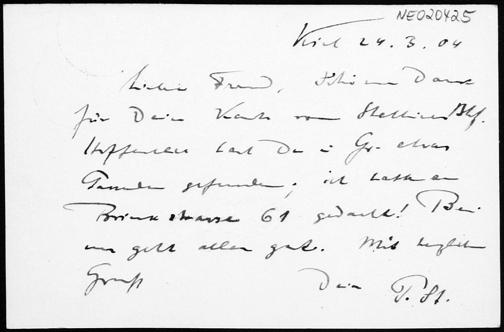 NE020425
Kiel 24.3.04
Lieber Freund, schönen Dank
für Deine Karte vom Stettiner Bhf.
Hoffentlich hast Du i Gr. etwas
gefunden; ich hatte an
61 gedacht! Bei
uns geht alles gut. Mit herzlichem
Gruß Dein P. St.